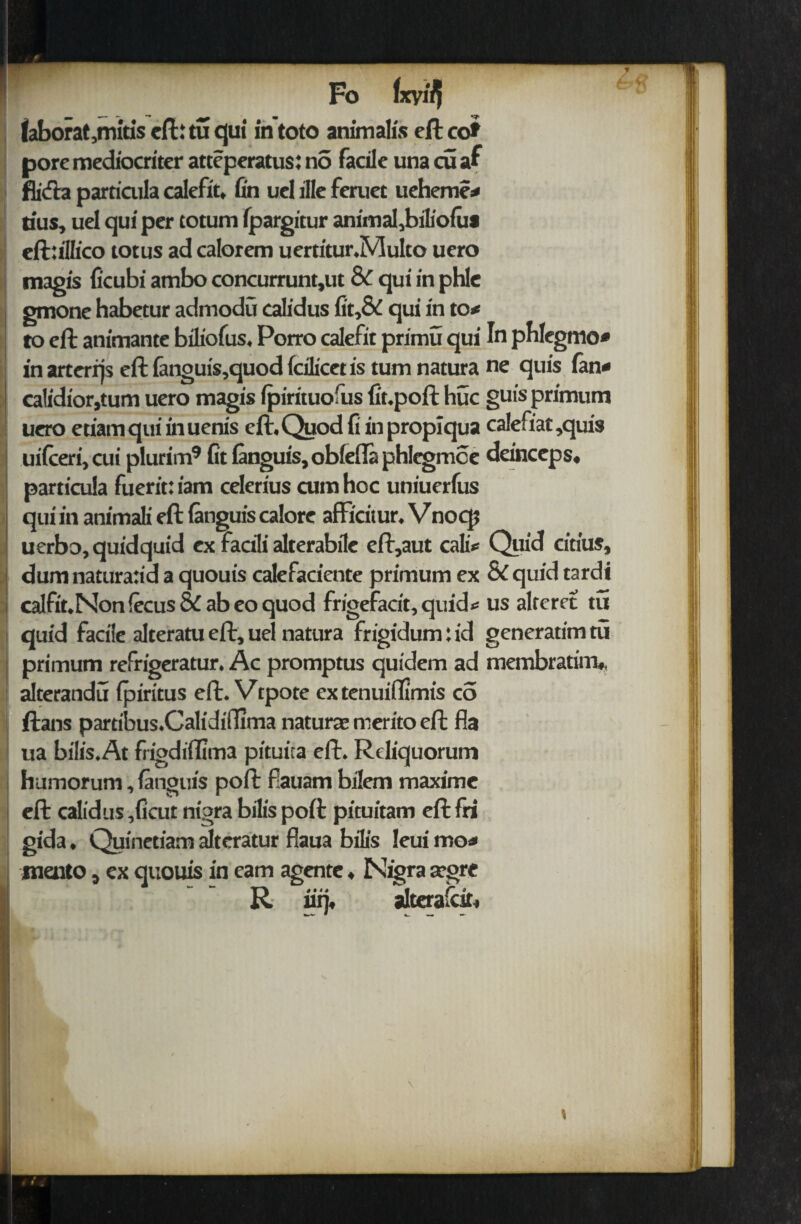 Fo lxviij
68
laborat,mitis eſt: tū qui in toto animalis eſt cor
pore mediocriter attēperatus: nō facile una cū af
flicta particula calefit. ſin uel ille feruet uehemē
tius, uel qui per totum ſpargitur animal,bilioſus
eſt:illico totus ad calorem uertitur.Multo uero
magis ſicubi ambo concurrunt,ut & qui in phle
gmone habetur admodū calidus ſit,& qui in to
to eſt animante bilioſus. Porro calefit primū qui
in arterijs eſt ſanguis,quod ſcilicet is tum natura
calidior,tum uero magis ſpirituoſus ſit.poſt hūc
uero etiam qui in uenis eſt.Quod ſi in propīqua
uiſceri, cui plurimꝰ ſit ſanguis, obſeſſa phlegmōe
particula fuerit: iam celerius cum hoc uniuerſus
qui in animali eſt ſanguis calore afficitur. Vnoqꝫ
uerbo, quidquid ex facili alterabile eſt,aut cali
dum natura:id a quouis calefaciente primum ex
calfit.Non ſecus & ab eo quod frigefacit, quid
quid facile alteratu eſt, uel natura frigidum: id
primum refrigeratur. Ac promptus quidem ad
alterandū ſpiritus eſt. Vtpote ex tenuiſſimis cō
ſtans partibus.Calidiſſima naturæ merito eſt fla
ua bilis.At frigdiſſima pituita eſt. Reliquorum
humorum, ſanguis poſt flauam bilem maxime
eſt calidus,ſicut nigra bilis poſt pituitam eſt fri
gida. Quinetiam alteratur flaua bilis leui mo
mento, ex quouis in eam agente. Nigra ægre
R iiij. alteraſcit.
In phlegmo
ne quis ſan
guis primum
calefiat,quis
deinceps.
Quid citius,
& quid tardi
us alteret tū
generatim tū
membratim.